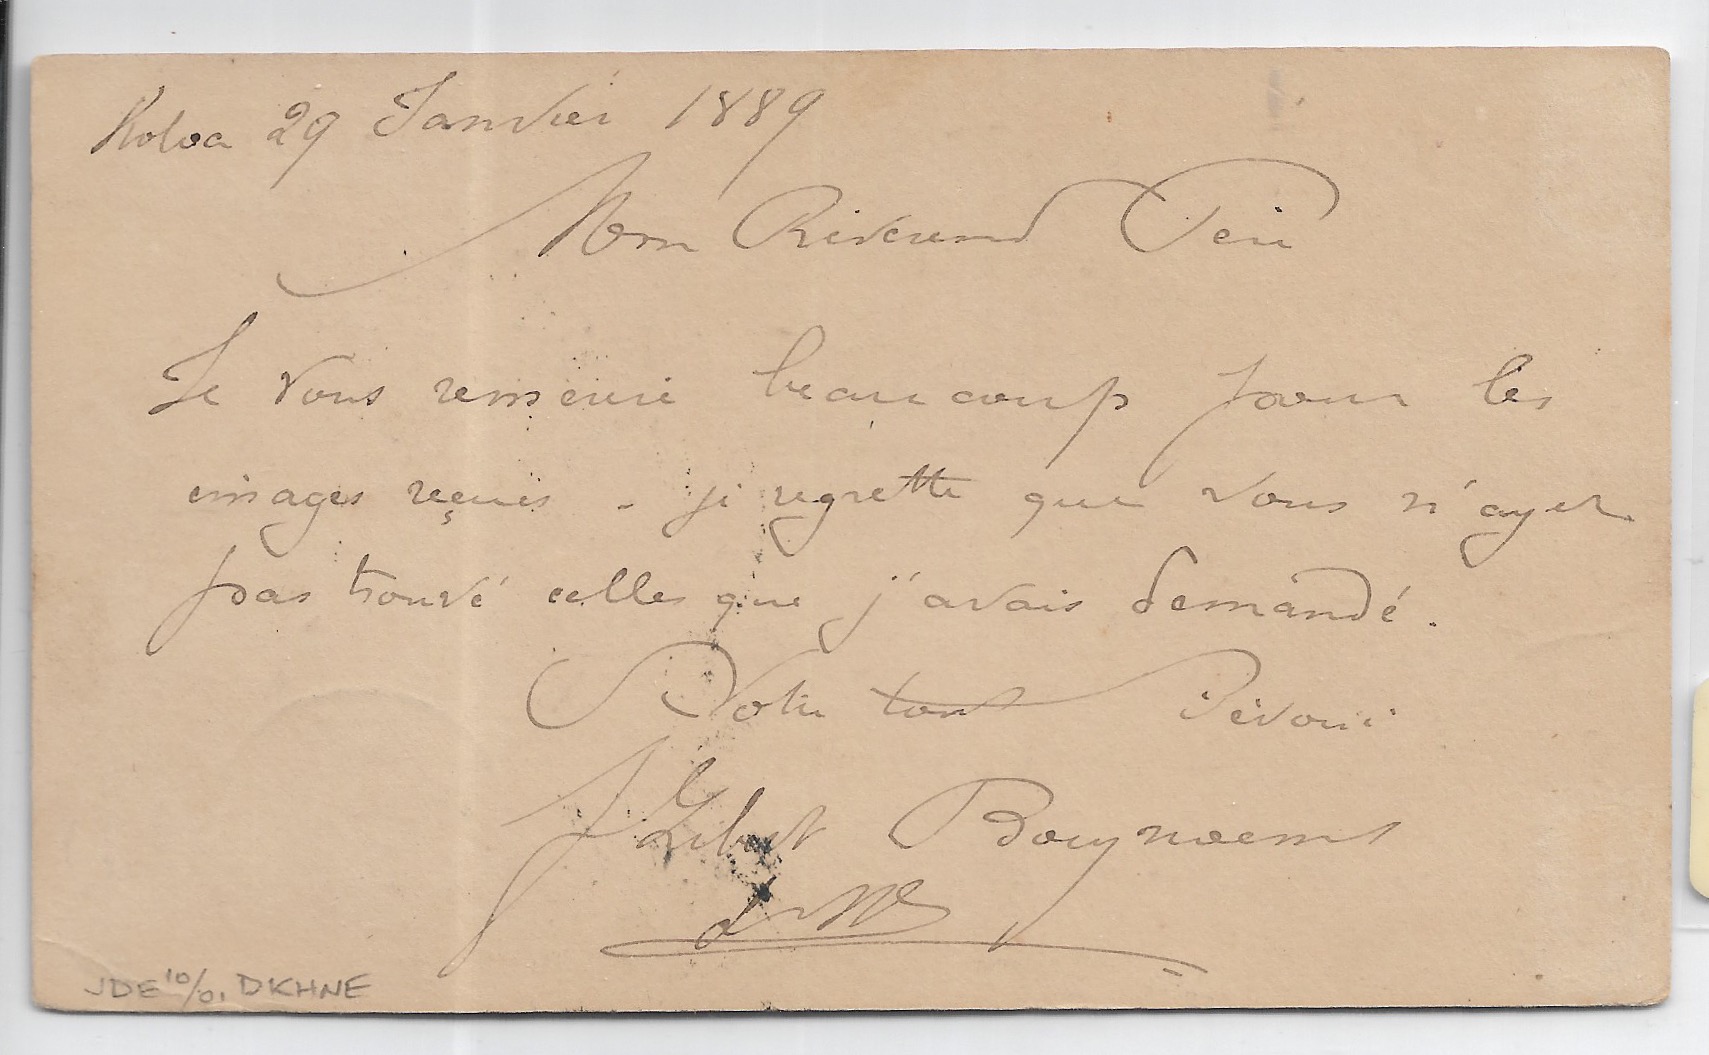 Koloa 29 Janvier 1889
Mon Révérend Père
Je vous remercie beaucoup pour les
images reçues - je regrette que vous n'ayez
pas trouvé celles que j'avais demandé.
Votre tout dévoué
Bouynoems
JDE 10/0, DKHNE